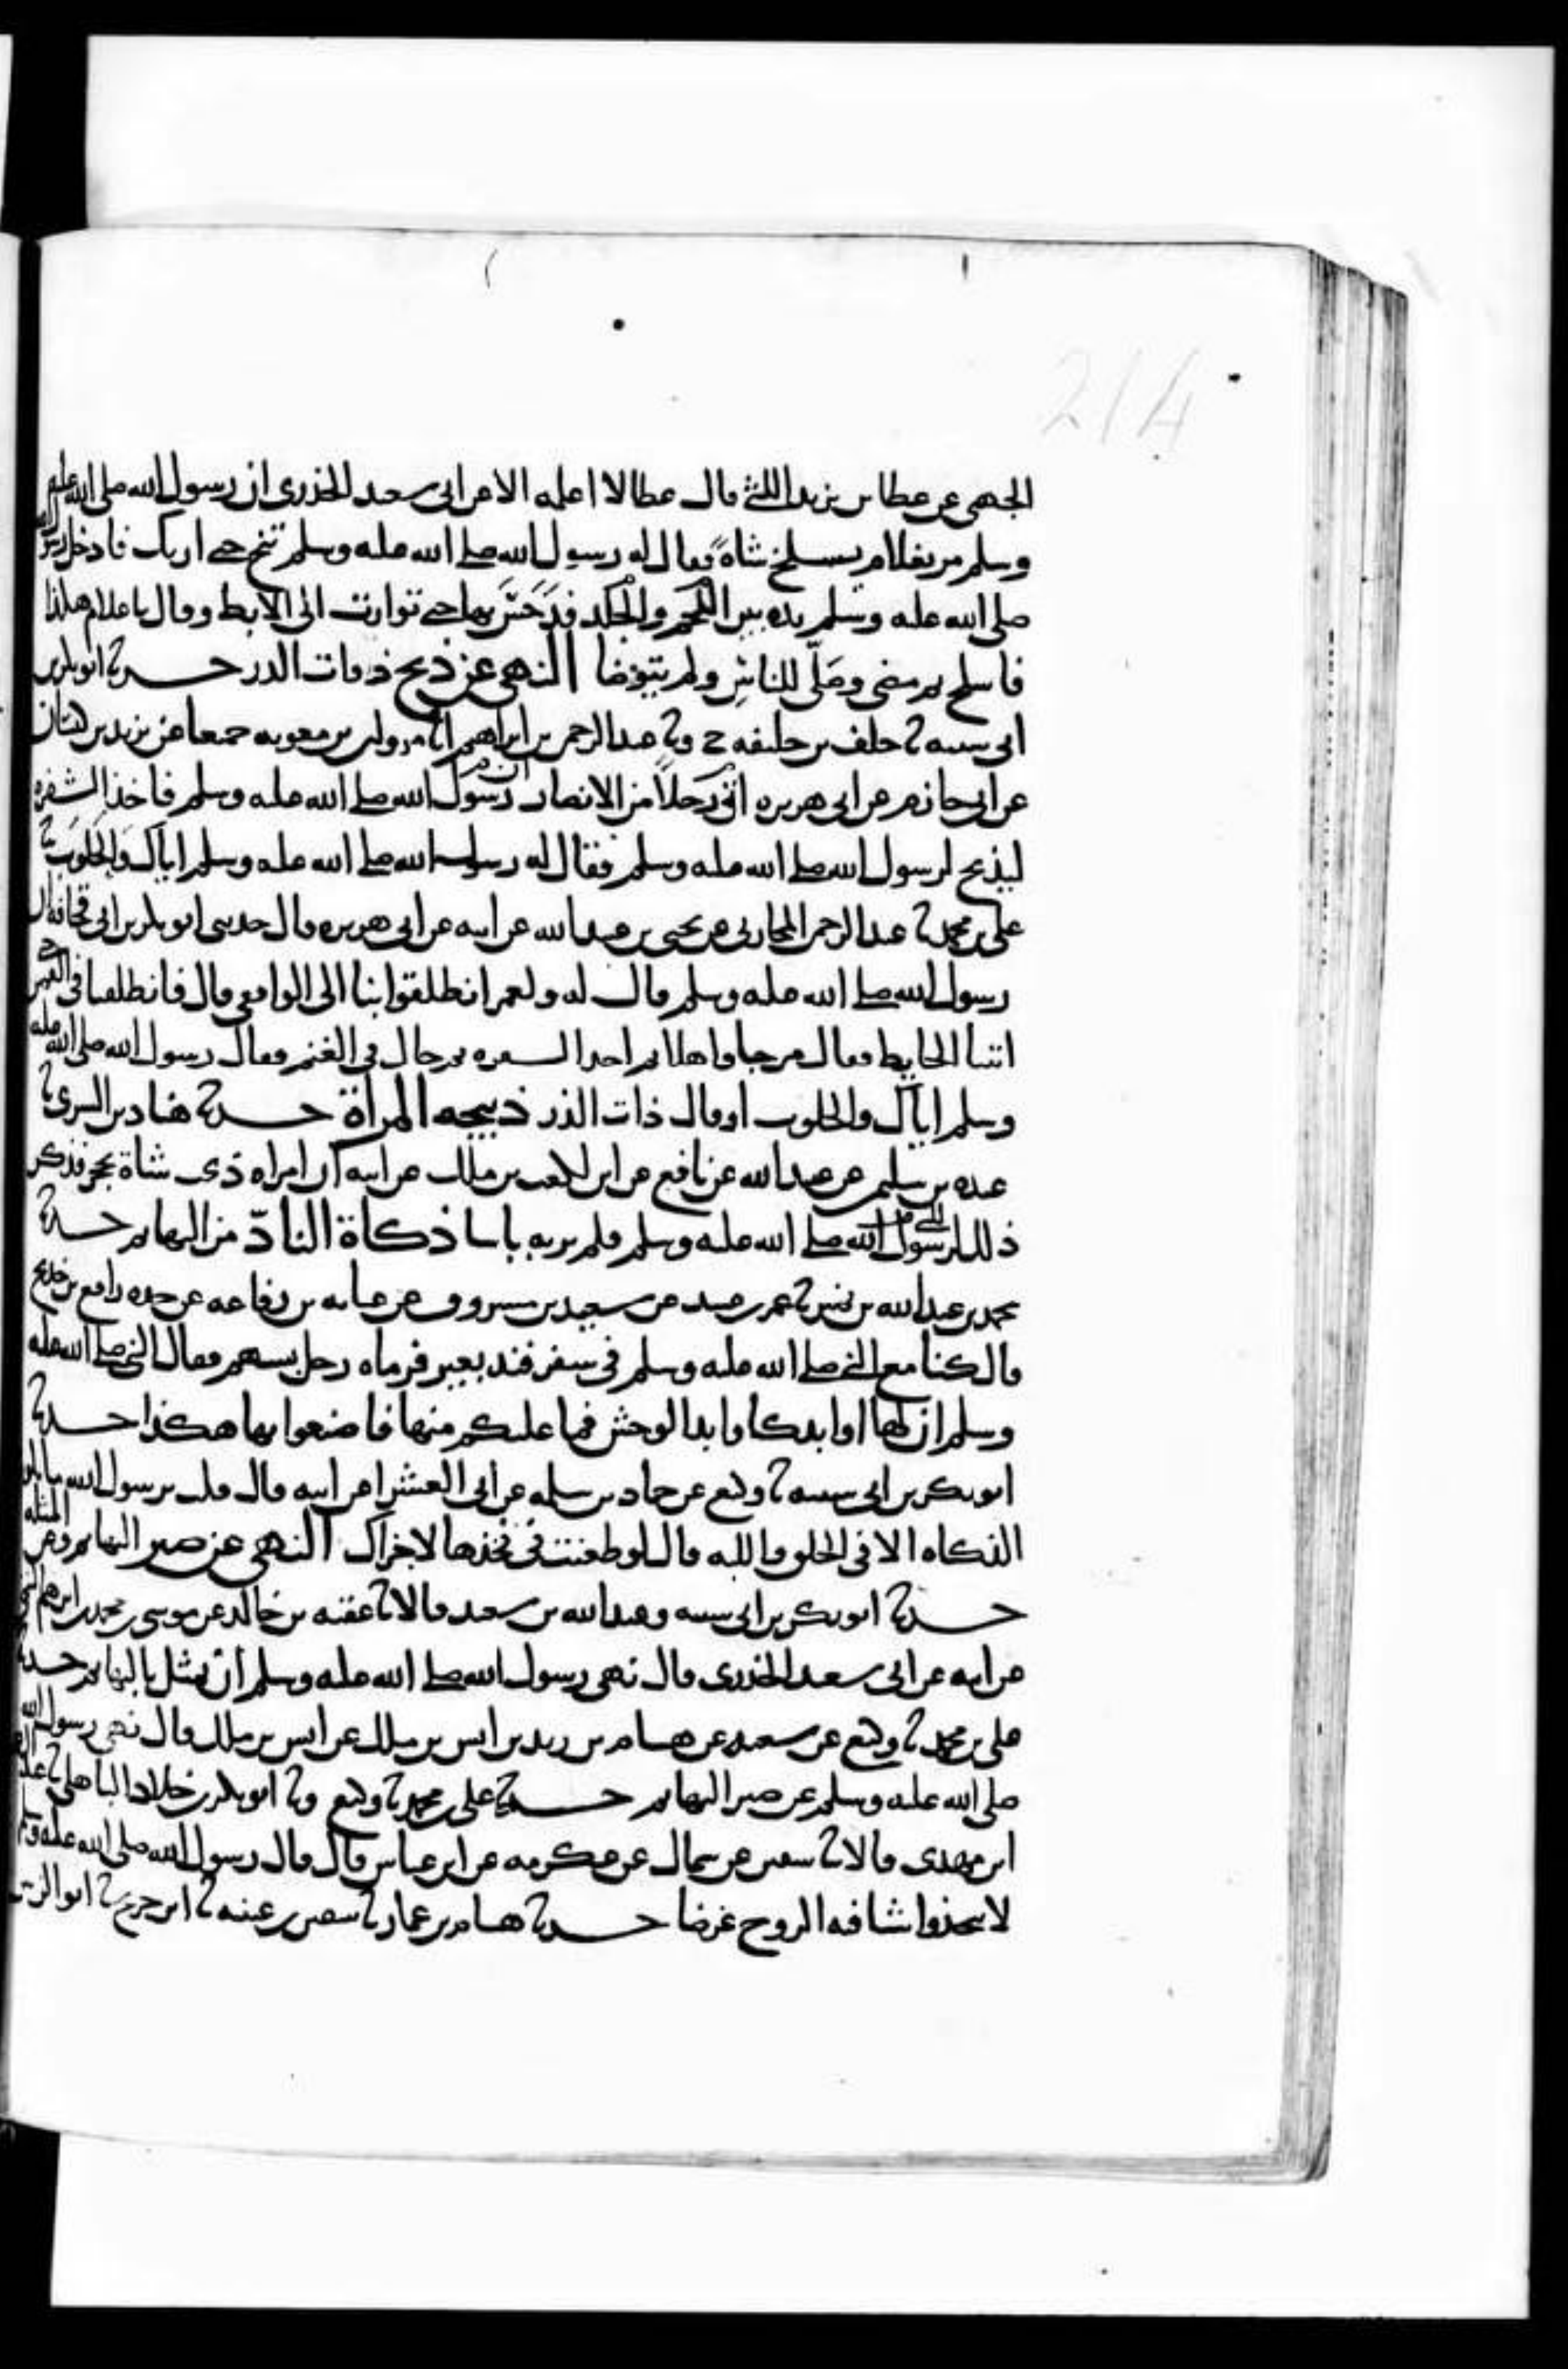 214
الجهنى عن عطا بن يزيد الليثى قال عطا لا اعلمه الا عن ابى سعيد الخدرى ان رسول الله صلى الله عليه
وسلم مر بغلام يسلخ شاة فقال له رسول الله صلى الله عليه وسلم تنح حتى اريك فادخل رسول الله
صلى الله عليه وسلم يده بين اللحم والجلد فدحس بها حتى توارت الى الابط وقال يا غلام هكذا
فاسلخ ثم مضى وصلى للناس ولم يتوضا النهى عن ذبح ذوات الدر حدثنا ابو بكر بن
ابى شيبه نا خلف بن خليفه ح ونا عبد الرحمن بن ابراهيم انا مروان بن معويه جميعا عن يزيد بن كيسان
عن ابى حازم عن ابى هريره ان رسول الله صلى الله عليه وسلم اتى رجلا من الانصار فاخذ الشفره
ليذبح لرسول الله صلى الله عليه وسلم فقال له رسول الله صلى الله عليه وسلم اياك والحلوب نا
على بن محمد نا عبد الرحمن المحاربى عن يحيى بن عبيد الله عن ابيه عن ابى هريره قال حدثنى ابو بكر بن ابى قحافه ان
رسول الله صلى الله عليه وسلم قال له ولعمر انطلقوا بنا الى الواقفى قال فانطلقنا فى القمر حتى
اتينا الحايط فقال مرحبا واهلا ثم اخذ الشفره ثم جال فى الغنم فقال رسول الله صلى الله عليه
وسلم اياك والحلوب او قال ذات الدر ذبيحه المراة حدثنا هناد بن السرى نا
عبده بن سليمن عن عبيد الله عن نافع عن ابن لكعب بن ملك عن ابيه ان امراه ذكت شاة بحجر فذكر
ذلك لرسول الله صلى الله عليه وسلم فلم ير به باسا ذكاة الناد من البهايم حدثنا
محمد بن عبد الله بن نمير نا عمر بن عبيد عن سعيد بن مسروق عن عبايه بن رفاعه عن جده رافع بن خديج
قال كنا مع النبى صلى الله عليه وسلم فى سفر فند بعير فرماه رجل بسهم فقال النبى صلى الله عليه
وسلم ان لها اوابد كاوابد الوحش فما غلبكم منها فاصنعوا بها هكذا حدثنا
ابو بكر بن ابى شيبه نا وكيع عن حماد بن سلمه عن ابى العشرا عن ابيه قال قلت يرسول الله ما تكون
الذكاه الا فى الحلق واللبه قال لو طعنت فى فخذها لاجزاك النهى عن صبر البهايم وعن المثله
حدثنا ابو بكر بن ابى شيبه وعبد الله بن سعيد قالا نا عقبه بن خالد عن موسى بن محمد بن ابرهيم التيمى
عن ابيه عن ابى سعيد الخدرى قال نهى رسول الله صلى الله عليه وسلم ان يمثل بالبهايم حدثنا
على بن محمد نا وكيع عن شعبه عن هشام بن زيد بن انس بن ملك عن انس بن ملك قال نهى رسول الله
صلى الله عليه وسلم عن صبر البهايم حدثنا على بن محمد نا وكيع ونا ابو بكر بن خلاد الباهلى نا عبد الرحمن
ابن مهدى قالا نا سفين عن سماك عن عكرمه عن ابن عباس قال قال رسول الله صلى الله عليه وسلم
لا تتخذوا شيا فيه الروح غرضا حدثنا هشام بن عمار نا سفين بن عيينه نا ابن جريج نا ابو الزبير